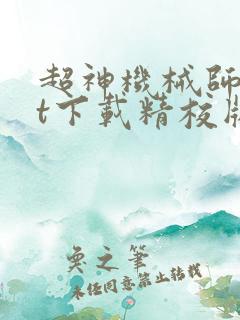 超神機械師
t下載精校版
奐之筆
未經同意禁止轉載